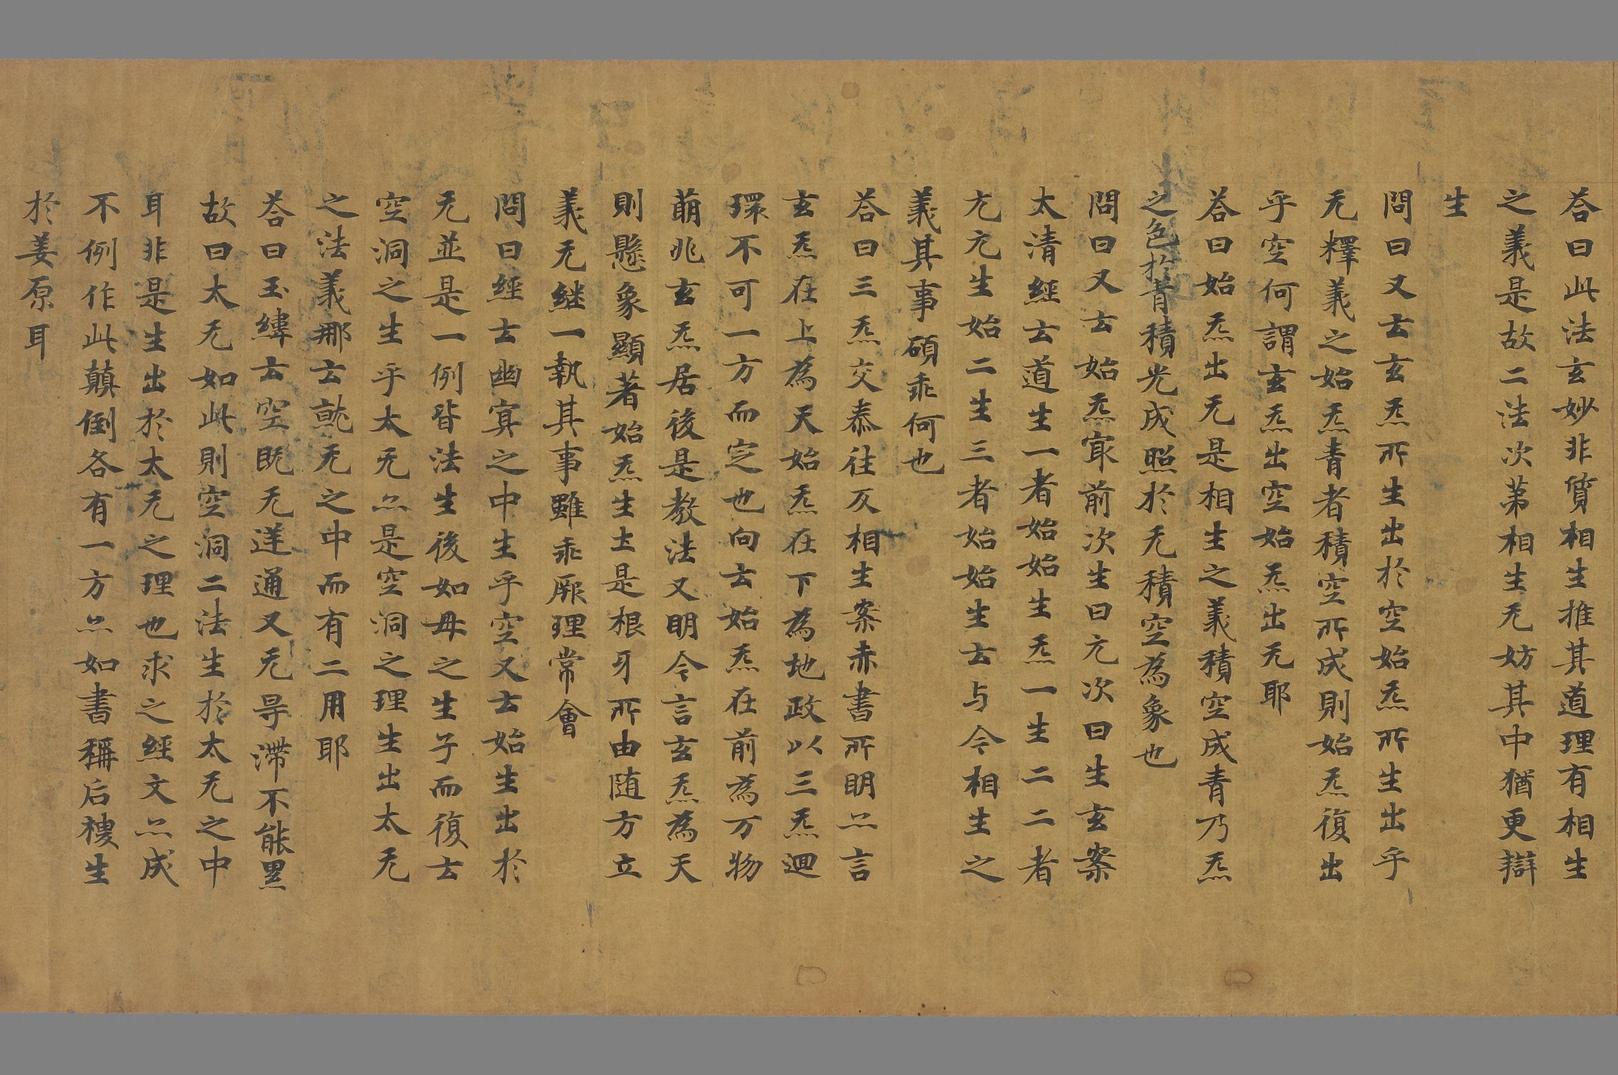 荅曰此法玄妙非質相生推其道理有相生
之義是故二法次第相生无妨其中猶更辯
生
問曰又云玄炁所生出於空始炁所生出乎
无釋義之始炁青者積空所成則始炁復出
乎空何謂玄炁出空始炁出无耶
荅曰始炁出无是相生之義積空成青乃炁
之色於青積光成照於无積空為象也
問曰又云始炁㝡前次生曰元次曰生玄案
太清經云道生一者始始生炁一生二二者
元元生始二生三者始始生玄与今相生之
義其事碩乖何也
荅曰三炁交泰往反相生案赤書所明亦言
玄炁在上為天始炁在下為地政以三炁迴
環不可一方而定也向云始炁在前為万物
萠兆玄炁居後是教法又明今言玄炁為天
則懸象顯著始炁生士是根牙所由随方立
義无継一執其事雖乖厥理常會
問曰經云幽冥之中生乎空又云始生出於
无並是一例皆法生後如母之生子而復云
空洞之生乎太无亦是空洞之理生出太无
之法義那云就无之中而有二用耶
荅曰玉緯云空既无涯通又无㝵滯不能累
故曰太无如此則空洞二法生於太无之中
耳非是生出於太无之理也求之經文亦成
不例作此顛倒各有一方亦如書稱后稷生
於姜原耳